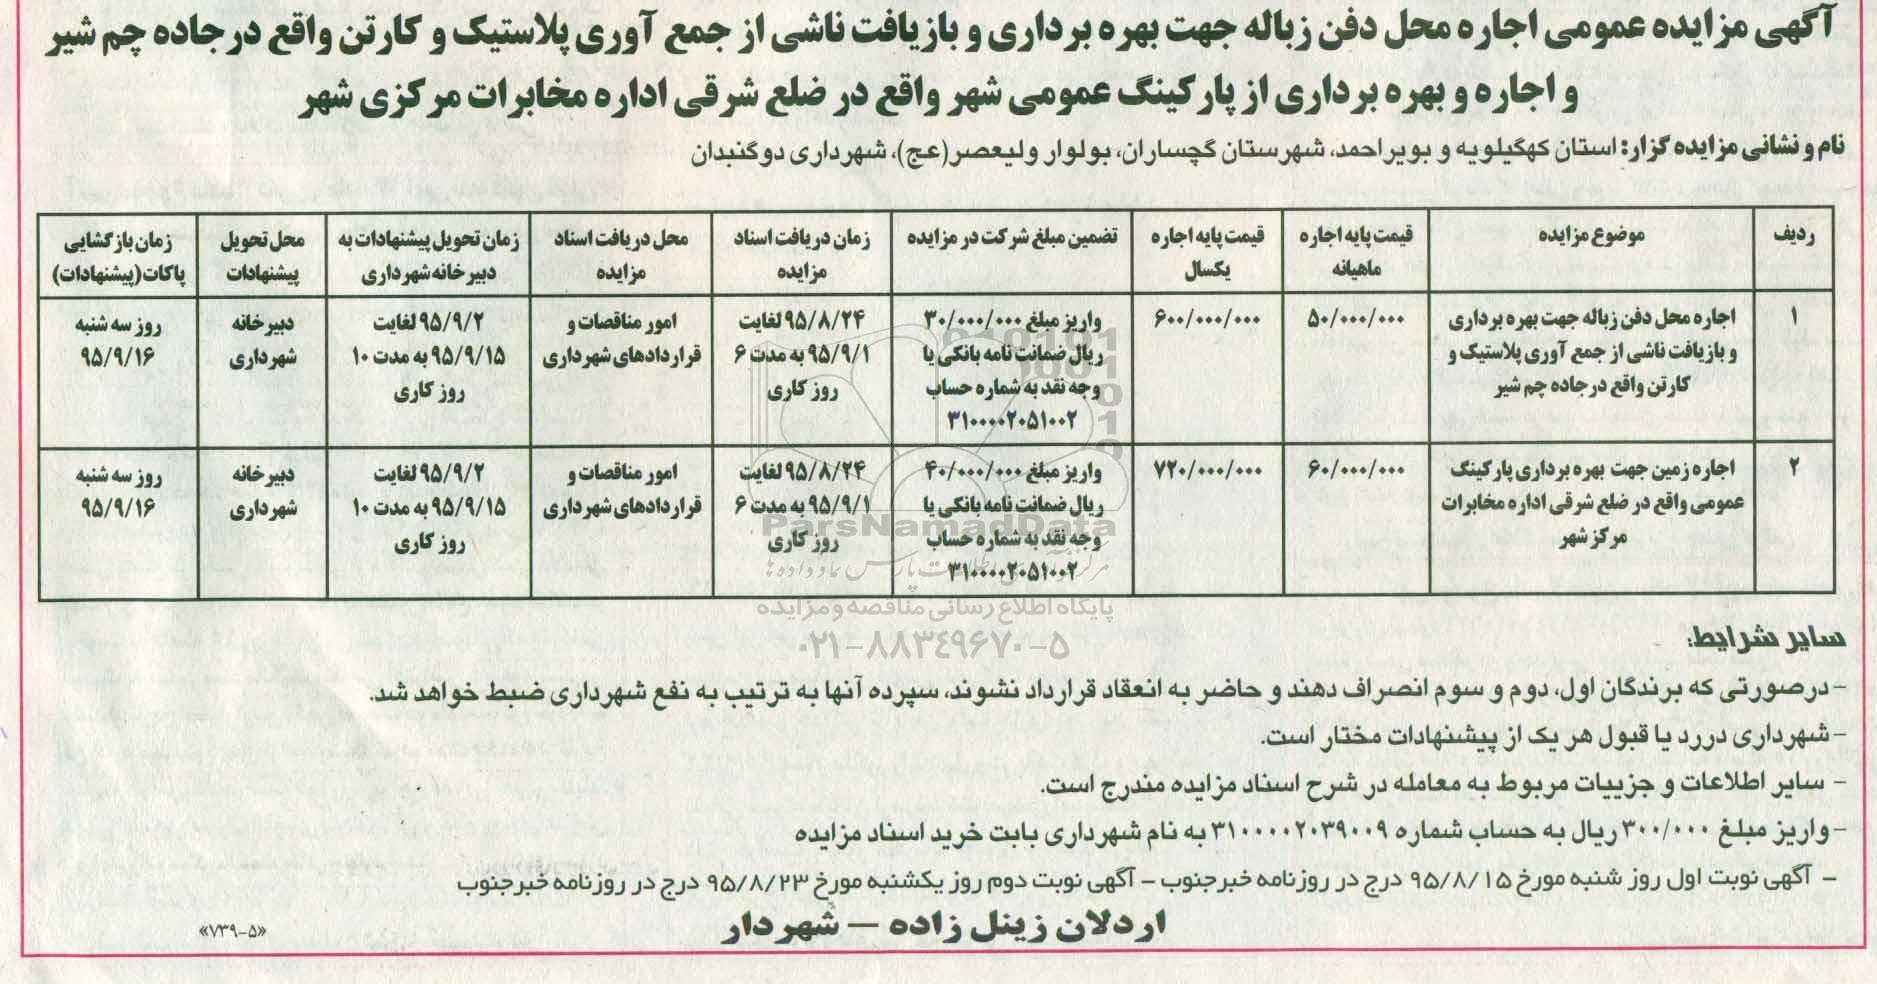 آگهی مزایده عمومی اجاره محل دفن زباله جهت بهره برداری و بازیافت ناشی از جمع آوری پلاستیک و کارتن واقع در جاده چم شیر
و اجاره و بهره برداری از پارکینگ عمومی شهر واقع در ضلع شرقی اداره مخابرات مرکزی شهر
نام و نشانی مزایده گزار: استان کهگیلویه و بویراحمد، شهرستان گچساران، بولوار ولیعصر(عج)، شهرداری دوگنبدان
ردیف
موضوع مزایده
قیمت پایه اجاره
ماهیانه
قیمت پایه اجاره
یکسال
تضمین مبلغ شرکت در مزایده
زمان دریافت اسناد
مزایده
محل دریافت اسناد
مزایده
زمان تحویل پیشنهادات به
دبیرخانه شهرداری
محل تحویل
پیشنهادات
زمان بازگشایی
پاکات(پیشنهادات)
۱
اجاره محل دفن زباله جهت بهره برداری
و بازیافت ناشی از جمع آوری پلاستیک و
کارتن واقع در جاده چم شیر
۵۰/۰۰۰/۰۰۰
۶۰۰/۰۰۰/۰۰۰
واریز مبلغ ۳۰/۰۰۰/۰۰۰
ریال ضمانت نامه بانکی یا
وجه نقد به شماره حساب
۳۱۰۰۰۰۲۰۵۱۰۰۲
۹۵/۸/۲۴ لغایت
۹۵/۹/۱ به مدت ۶
روز کاری
امور مناقصات و
قراردادهای شهرداری
۹۵/۹/۲ لغایت
۹۵/۹/۱۵ به مدت ۱۰
روز کاری
دبیرخانه
شهرداری
روز سه شنبه
۹۵/۹/۱۶
۲
اجاره زمین جهت بهره برداری پارکینگ
عمومی واقع در ضلع شرقی اداره مخابرات
مرکز شهر
۶۰/۰۰۰/۰۰۰
۷۲۰/۰۰۰/۰۰۰
واریز مبلغ ۴۰/۰۰۰/۰۰۰
ریال ضمانت نامه بانکی یا
وجه نقد به شماره حساب
۳۱۰۰۰۰۲۰۵۱۰۰۲
۹۵/۸/۲۴ لغایت
۹۵/۹/۱ به مدت ۶
روز کاری
امور مناقصات و
قراردادهای شهرداری
۹۵/۹/۲ لغایت
۹۵/۹/۱۵ به مدت ۱۰
روز کاری
دبیرخانه
شهرداری
روز سه شنبه
۹۵/۹/۱۶
ParsNamadData
پایگاه اطلاع رسانی مناقصه و مزایده
۰۲۱-۸۸۳۴۹۶۷۰-۵
سایر شرایط:
- درصورتی که برندگان اول، دوم و سوم انصراف دهند و حاضر به انعقاد قرارداد نشوند، سپرده آنها به ترتیب به نفع شهرداری ضبط خواهد شد.
- شهرداری در رد یا قبول هر یک از پیشنهادات مختار است.
- سایر اطلاعات و جزییات مربوط به معامله در شرح اسناد مزایده مندرج است.
- واریز مبلغ ۳۰۰/۰۰۰ ریال به حساب شماره ۳۱۰۰۰۰۲۰۳۹۰۰۹ به نام شهرداری بابت خرید اسناد مزایده
- آگهی نوبت اول روز شنبه مورخ ۹۵/۸/۱۵ درج در روزنامه خبرجنوب - آگهی نوبت دوم روز یکشنبه مورخ ۹۵/۸/۲۳ درج در روزنامه خبرجنوب
اردلان زینل زاده — شهردار
«۷۳۹-۵»